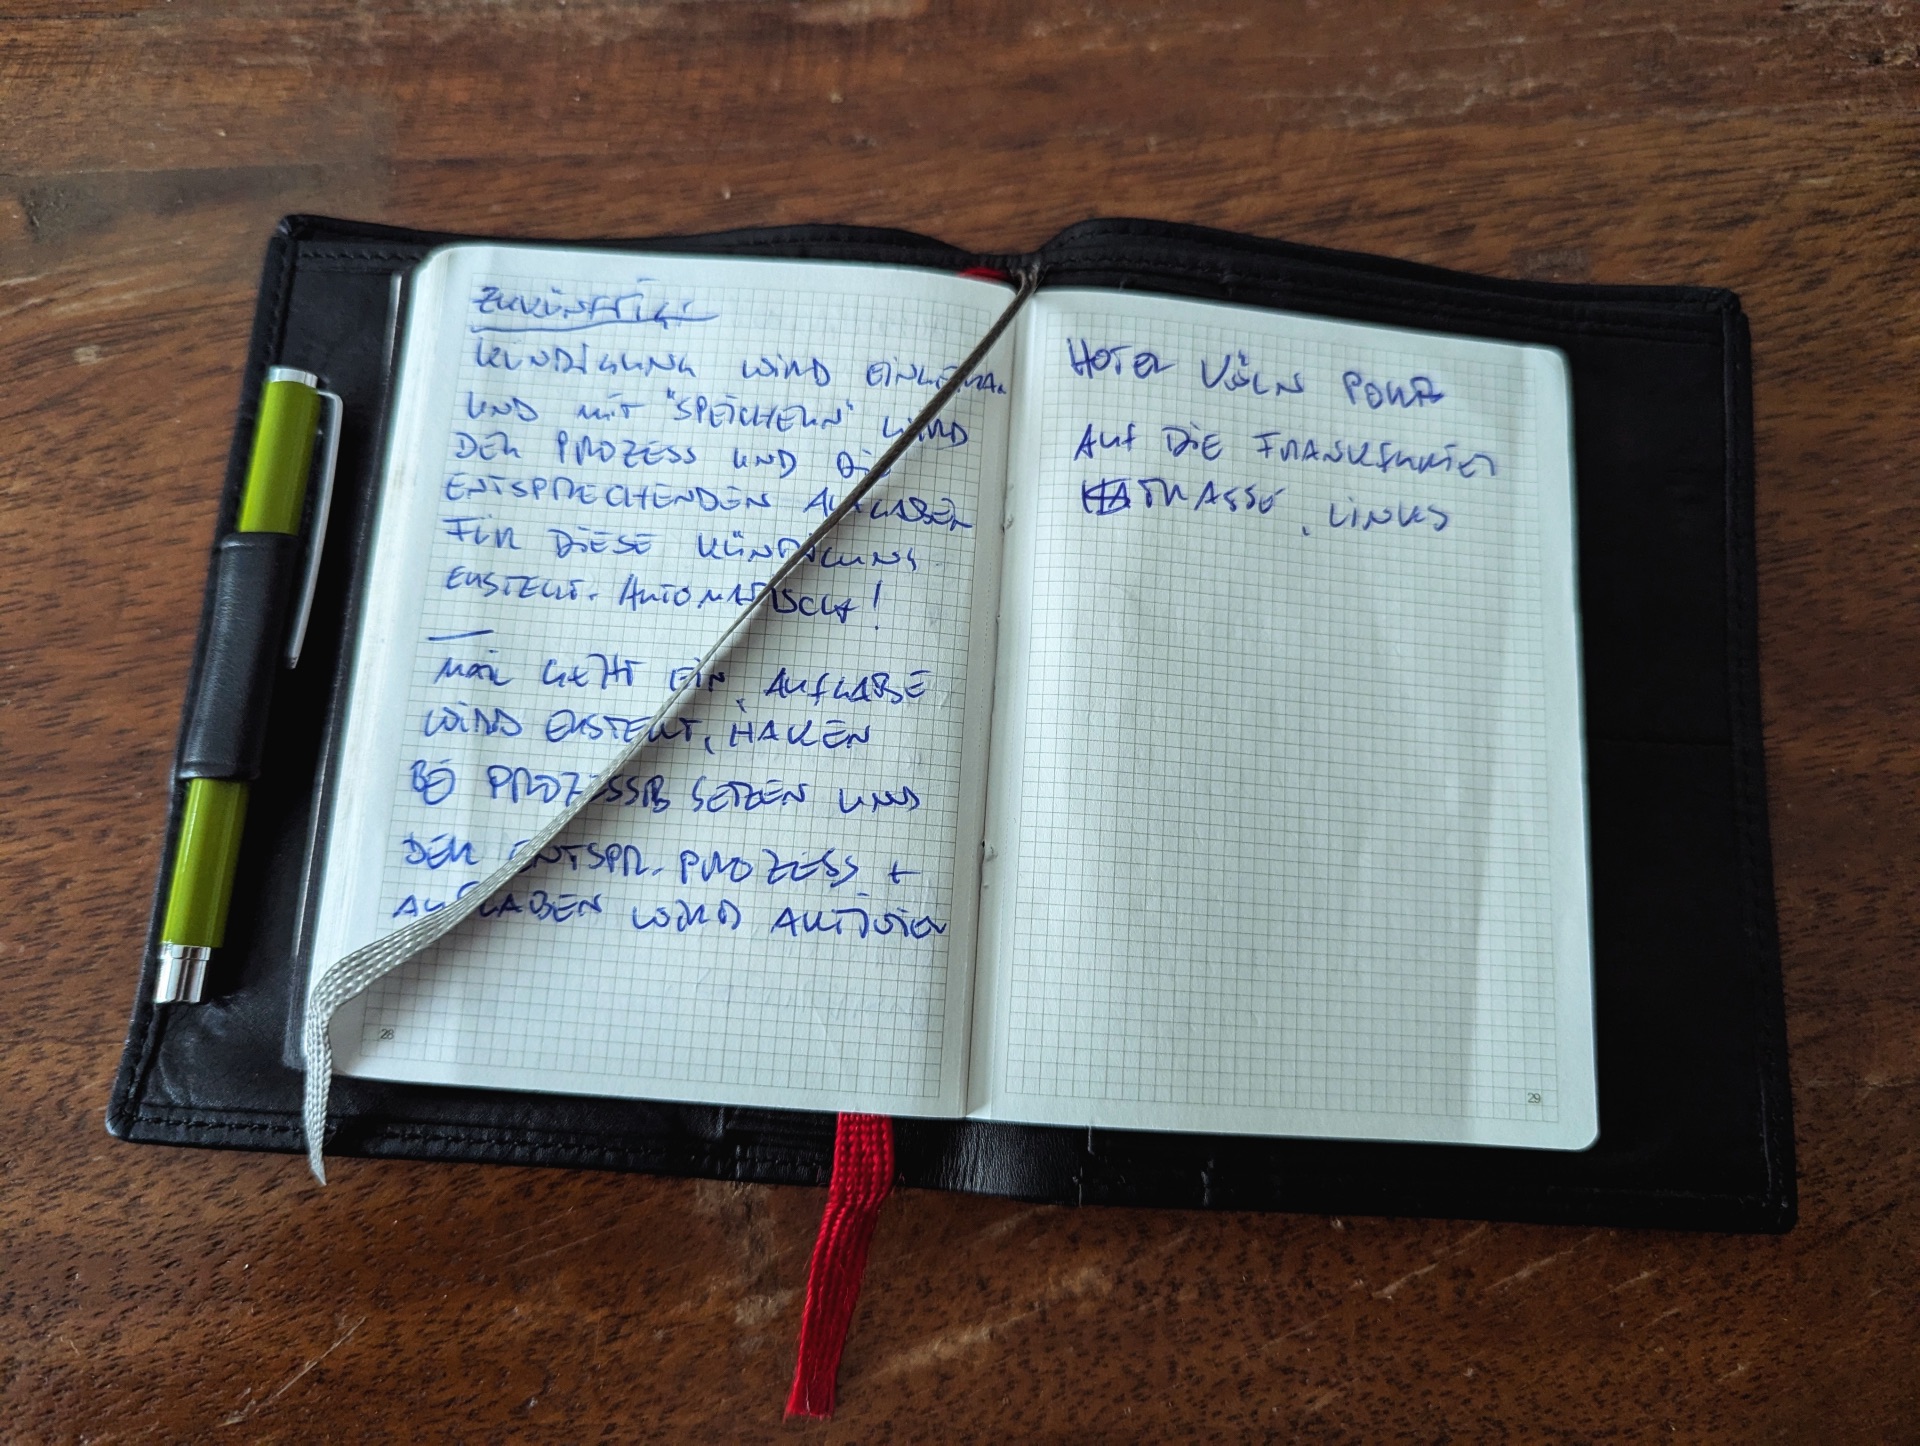 ZUKÜNFTIG:
KÜNDIGUNG WIRD
UND MIT "SPEICHERN" WIRD
DER PROZESS UND DIE
ENTSPRECHENDEN AUFGABEN
FÜR DIESE KÜNDIGUNG
ERSTELLT. AUTOMATISCH!
MAIL GEHT EIN, AUFGABE
WIRD ERSTELLT, HAKEN
BEI PROZESS SETZEN UND
DER ENTSPR. PROZESS +
AUFGABEN WIRD AKTIVIERT
28
HOTEL KÖLN PORZ
AUF DIE FRANKFURTER
STRASSE, LINKS
29